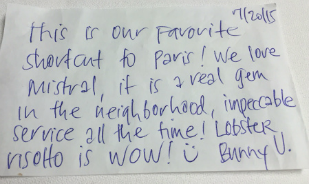 7/20/15
This is our Favorite
shortcut to Paris! We love
Mistral, it is a real gem
in the neighborhood, impeccable
service all the time! Lobster
risotto is WOW! ☺ Bunny V.